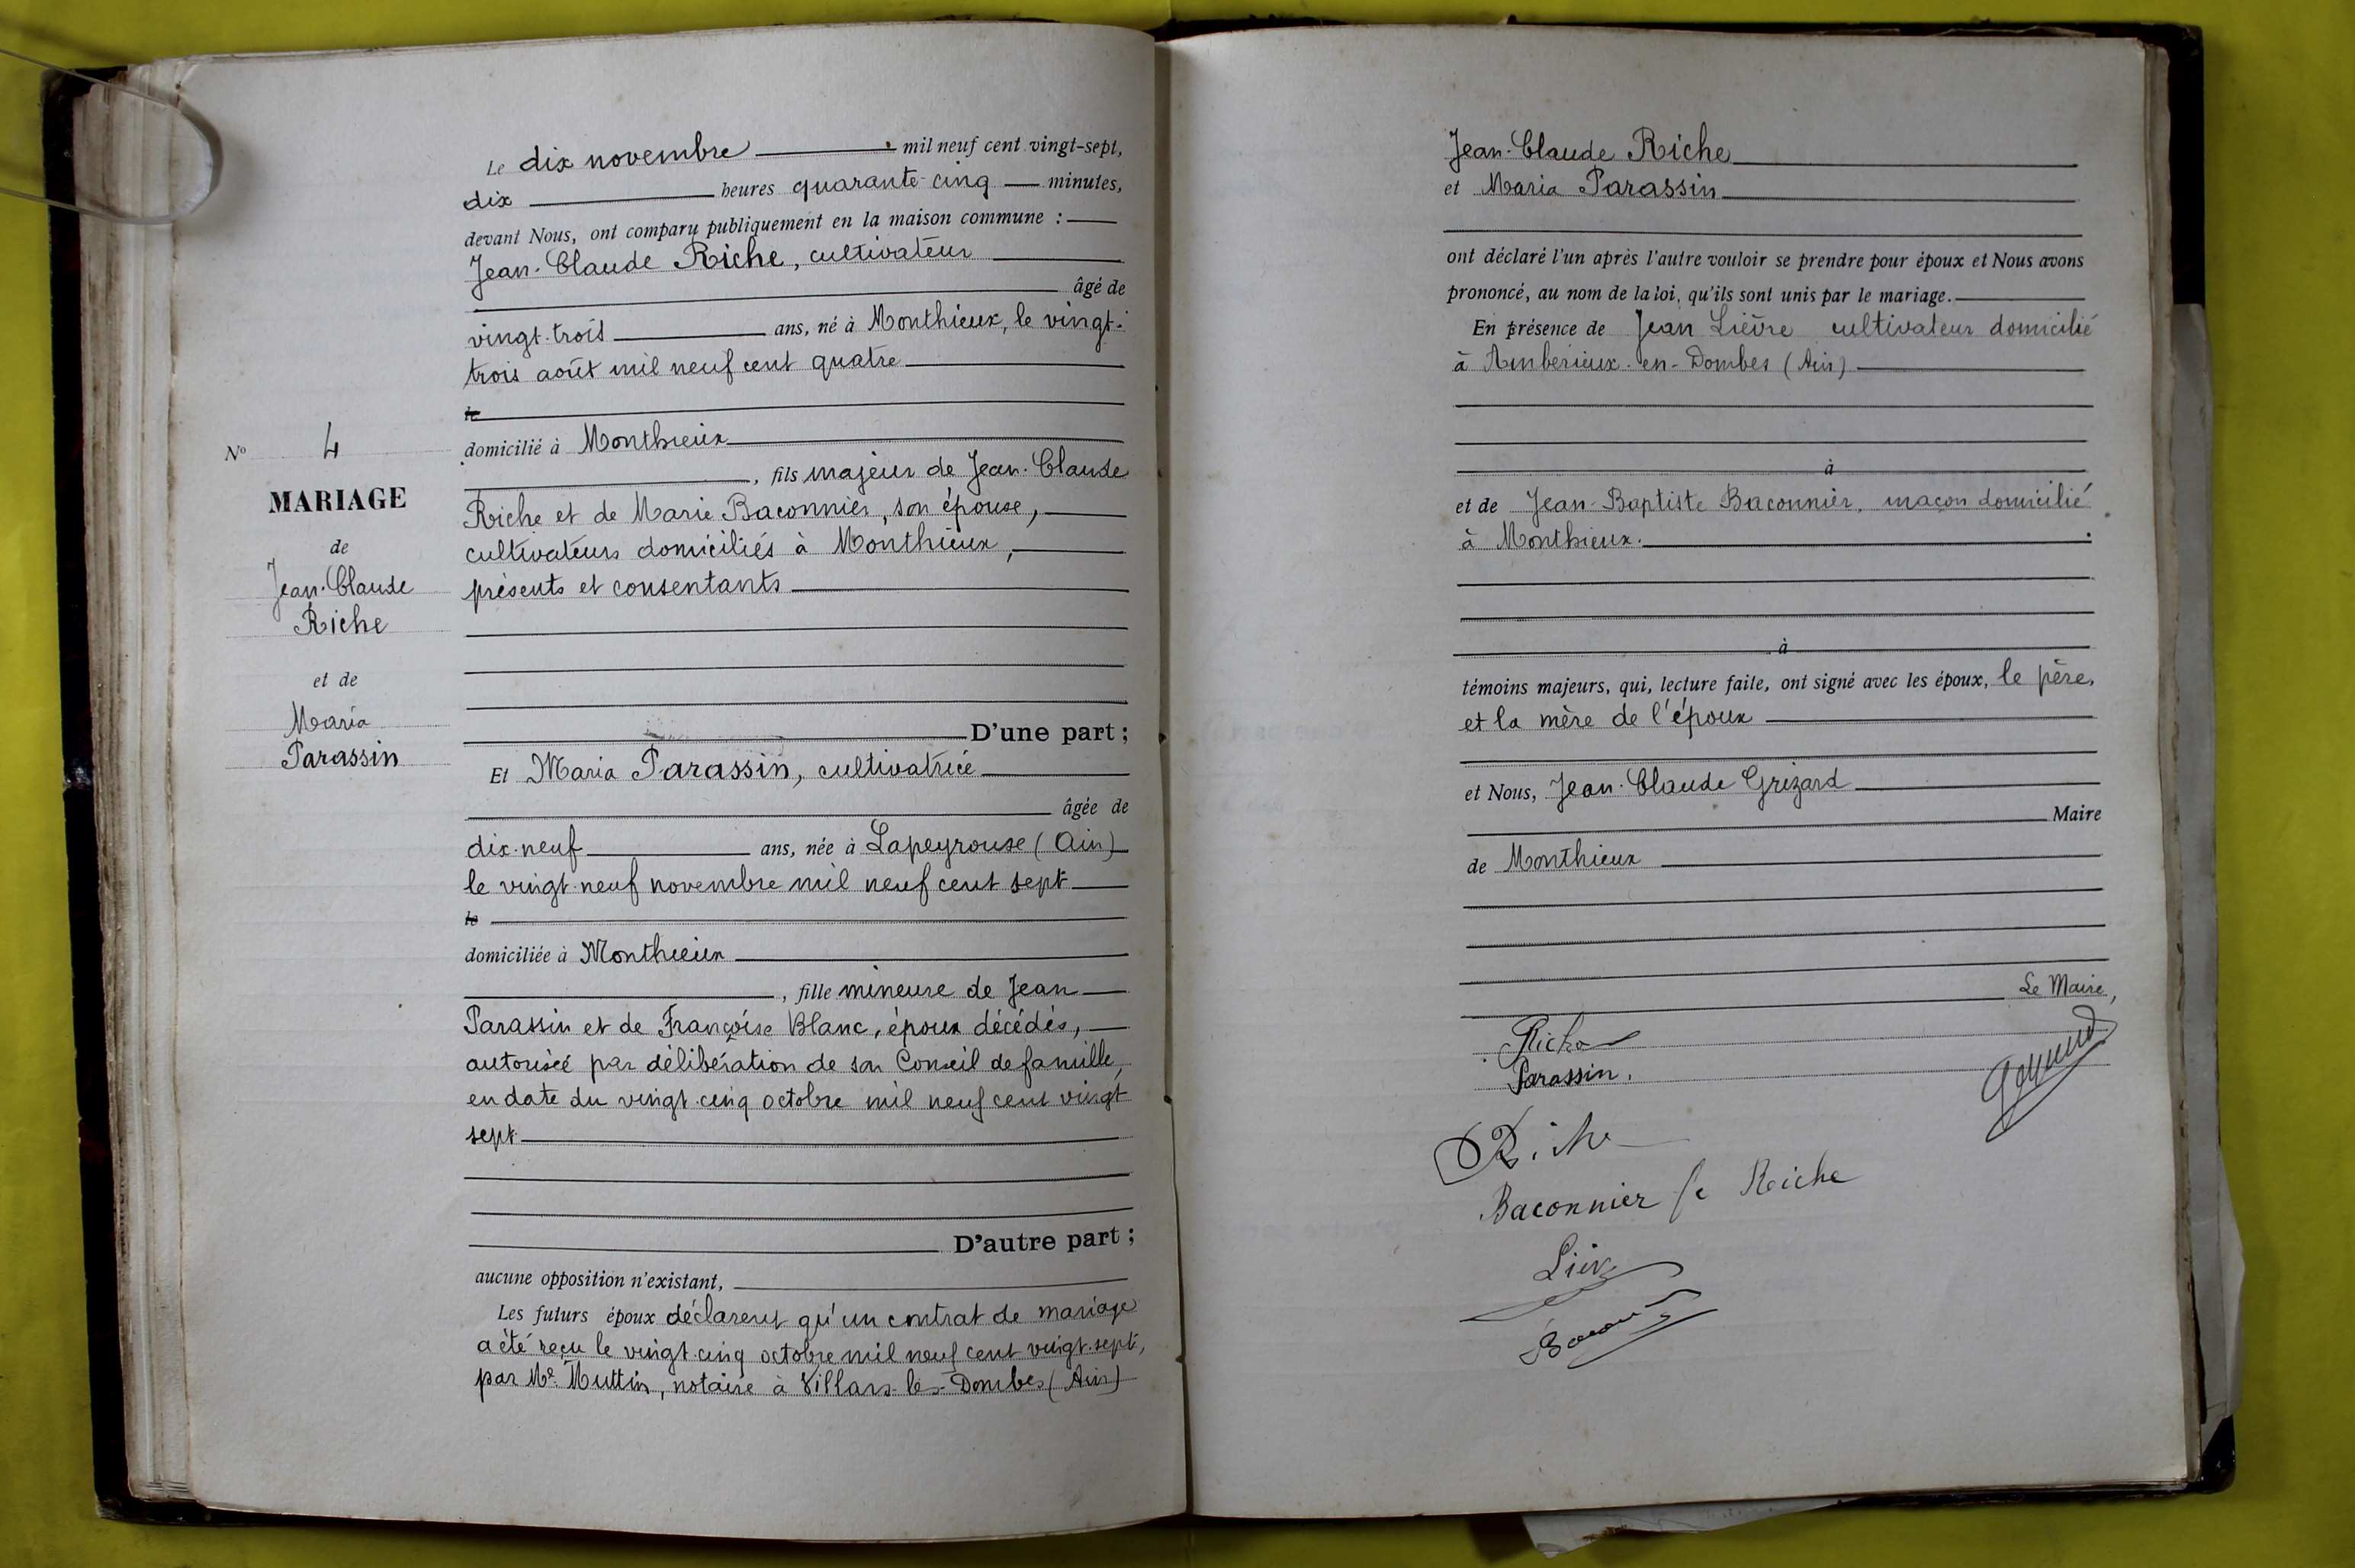 Le dix novembre mil neuf cent vingt-sept,
dix heures quarante-cinq minutes,
devant Nous, ont comparu publiquement en la maison commune :
Jean-Claude Riche, cultivateur
âgé de
vingt-trois ans, né à Monthieux, le vingt-
trois août mil neuf cent quatre
le
domicilié à Monthieux
, fils majeur de Jean-Claude
Riche et de Marie Baconnier, son épouse,
cultivateurs domiciliés à Monthieux,
présents et consentants
D'une part ;
Et Maria Parassin, cultivatrice
âgée de
dix-neuf ans, née à Lapeyrouse (Ain)
le vingt-neuf novembre mil neuf cent sept
le
domiciliée à Monthieux
, fille mineure de Jean
Parassin et de Françoise Blanc, époux décédés,
autorisée par délibération de son Conseil de famille,
en date du vingt-cinq octobre mil neuf cent vingt
sept
D'autre part ;
aucune opposition n'existant,
Les futurs époux déclarent qu'un contrat de mariage
a été reçu le vingt-cinq octobre mil neuf cent vingt-sept,
par Me Muttin, notaire à Villars-les-Dombes (Ain)
No 4
MARIAGE
de
Jean-Claude
Riche
et de
Maria
Parassin
Jean-Claude Riche
et Maria Parassin
ont déclaré l'un après l'autre vouloir se prendre pour époux et Nous avons
prononcé, au nom de la loi, qu'ils sont unis par le mariage.
En présence de Jean Lièvre cultivateur domicilié
à Ambérieux-en-Dombes (Ain)
à
et de Jean-Baptiste Baconnier, maçon domicilié
à Monthieux.
à
témoins majeurs, qui, lecture faite, ont signé avec les époux, le père,
et la mère de l'époux
et Nous, Jean-Claude Grizard
Maire
de Monthieux
Le Maire,
Riche
Parassin.
Riche
Baconnier fe Riche